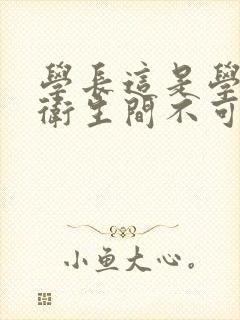 學長這是學
衛生間不可
小鱼大心。